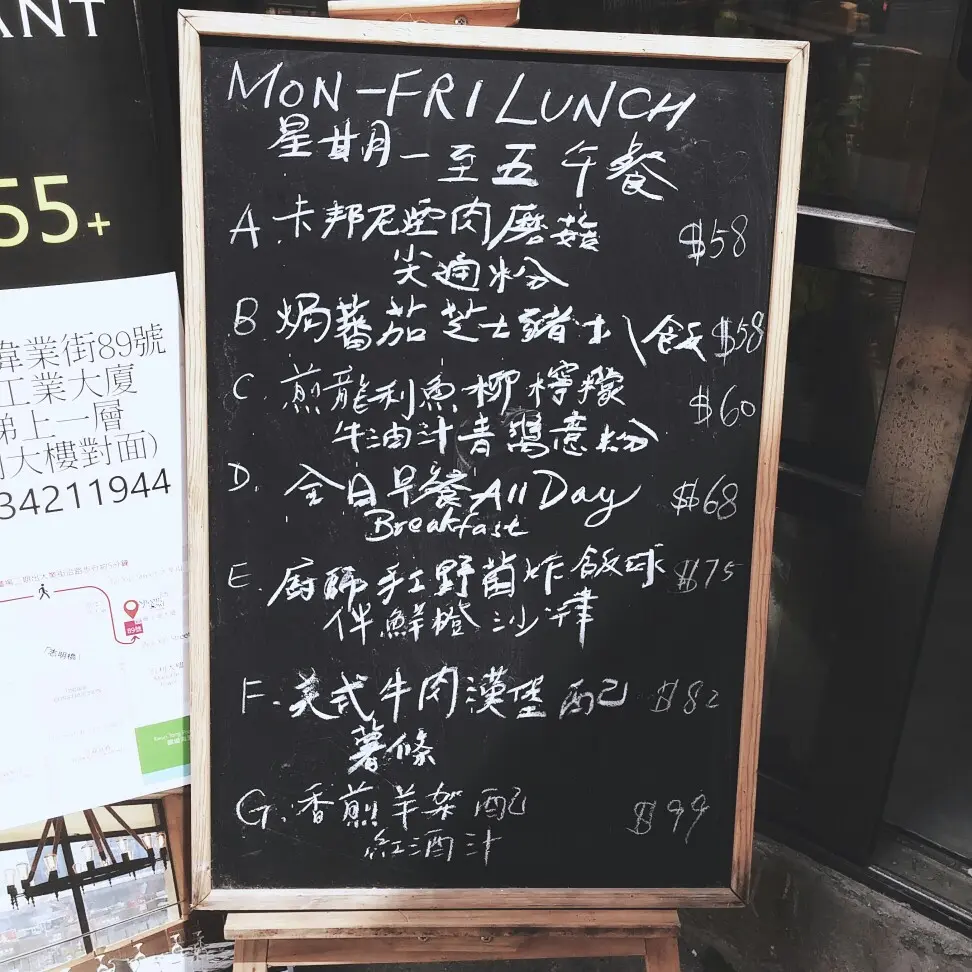 ANT
55+
偉業街89號
工業大廈
梯上一層
大樓對面)
34211944
89號
MON-FRI LUNCH
星期一至五午餐
A. 卡邦尼煙肉磨菇 $58
尖通粉
B. 焗蕃茄芝士豬扒飯 $58
C. 煎龍利魚柳檸檬 $60
牛油汁青醬意粉
D. 全日早餐 All Day $68
Breakfast
E. 廚師手工野菌炸飯球 $75
伴鮮橙沙律
F. 美式牛肉漢堡配 $82
薯條
G. 香煎羊架配 $99
紅酒汁